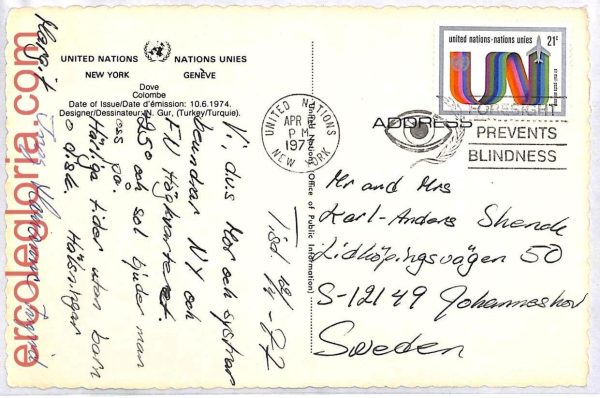 UNITED NATIONS NATIONS UNIES
NEW YORK GENÈVE
Dove
Colombe
Date of Issue/Date d'émission: 10.6.1974.
Designer/Dessinateur: N. Gur, (Turkey/Turquie).
united nations-nations unies 21c
air mail-poste aérienne
UNITED NATIONS
APR
PM
1977
NEW YORK
ADDRESS
FORESIGHT
PREVENTS
BLINDNESS
United Nations (Office of Public Information)
Tisd 12/4-77
Vi, dvs Mor och systrar
beundrar NY och
FN Högkvarteret.
25° och sol bjuder man
oss på.
Härliga tider utan barn
o disk.
Hälsningar
Margit
Ingrid
Mr and Mrs
Karl-Anders Skende
Lidköpingsvägen 50
S-12149 Johanneshov
Sweden
ercolegloria.com